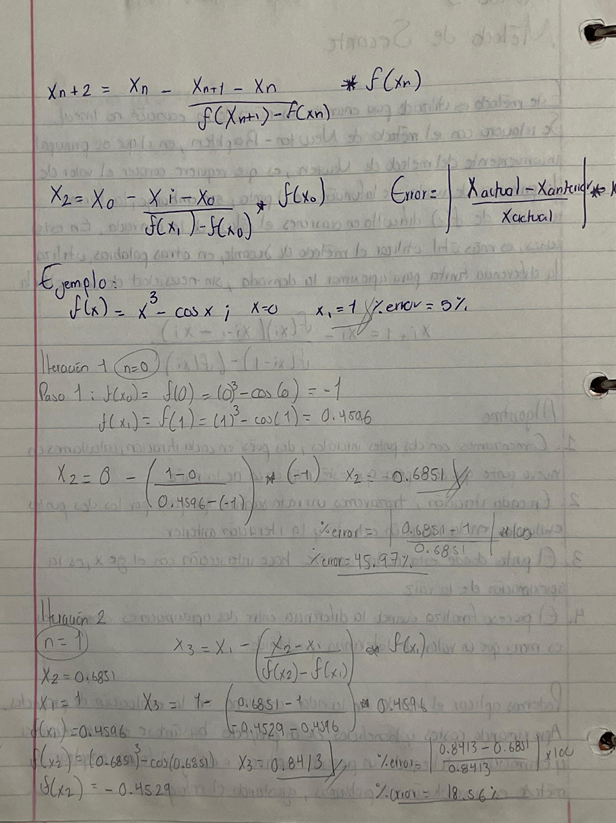 Xn+2 = Xn - (Xn+1 - Xn) / (f(Xn+1) - f(Xn)) * f(Xn)
X2 = X0 - (X1 - X0) / (f(x1) - f(x0)) * f(x0)  Error = | (Xactual - Xanterior) / Xactual | *
Ejemplo:
f(x) = x³ - cos x ;  x=0  x1 = 1  % error = 5%
Iteración 1 (n=0)
Paso 1 : f(x0) = f(0) = (0)³ - cos(0) = -1
f(x1) = f(1) = (1)³ - cos(1) = 0.4596
X2 = 0 - ( (1-0) / (0.4596 - (-1)) ) * (-1)  X2 = 0.6851
% error = | (0.6851 - 1) / 0.6851 | *100
% error = 45.97%
Iteración 2
n = 1  X3 = X1 - ( (X2 - X1) / (f(x2) - f(x1)) ) * f(x1)
X2 = 0.6851
X1 = 1  X3 = 1 - ( (0.6851 - 1) / (-0.4529 - 0.4596) ) * 0.4596
f(x1) = 0.4596
f(x2) = (0.6851)³ - cos(0.6851)  X3 = 0.8413  % error = | (0.8413 - 0.6851) / 0.8413 | x100
f(x2) = -0.4529  % error = 18.56%